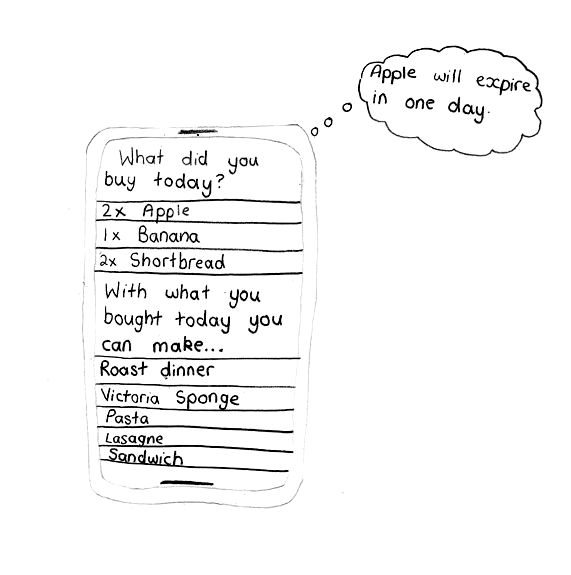 Apple will expire
in one day.
What did you
buy today?
2x Apple
1x Banana
2x Shortbread
With what you
bought today you
can make...
Roast dinner
Victoria Sponge
Pasta
Lasagne
Sandwich